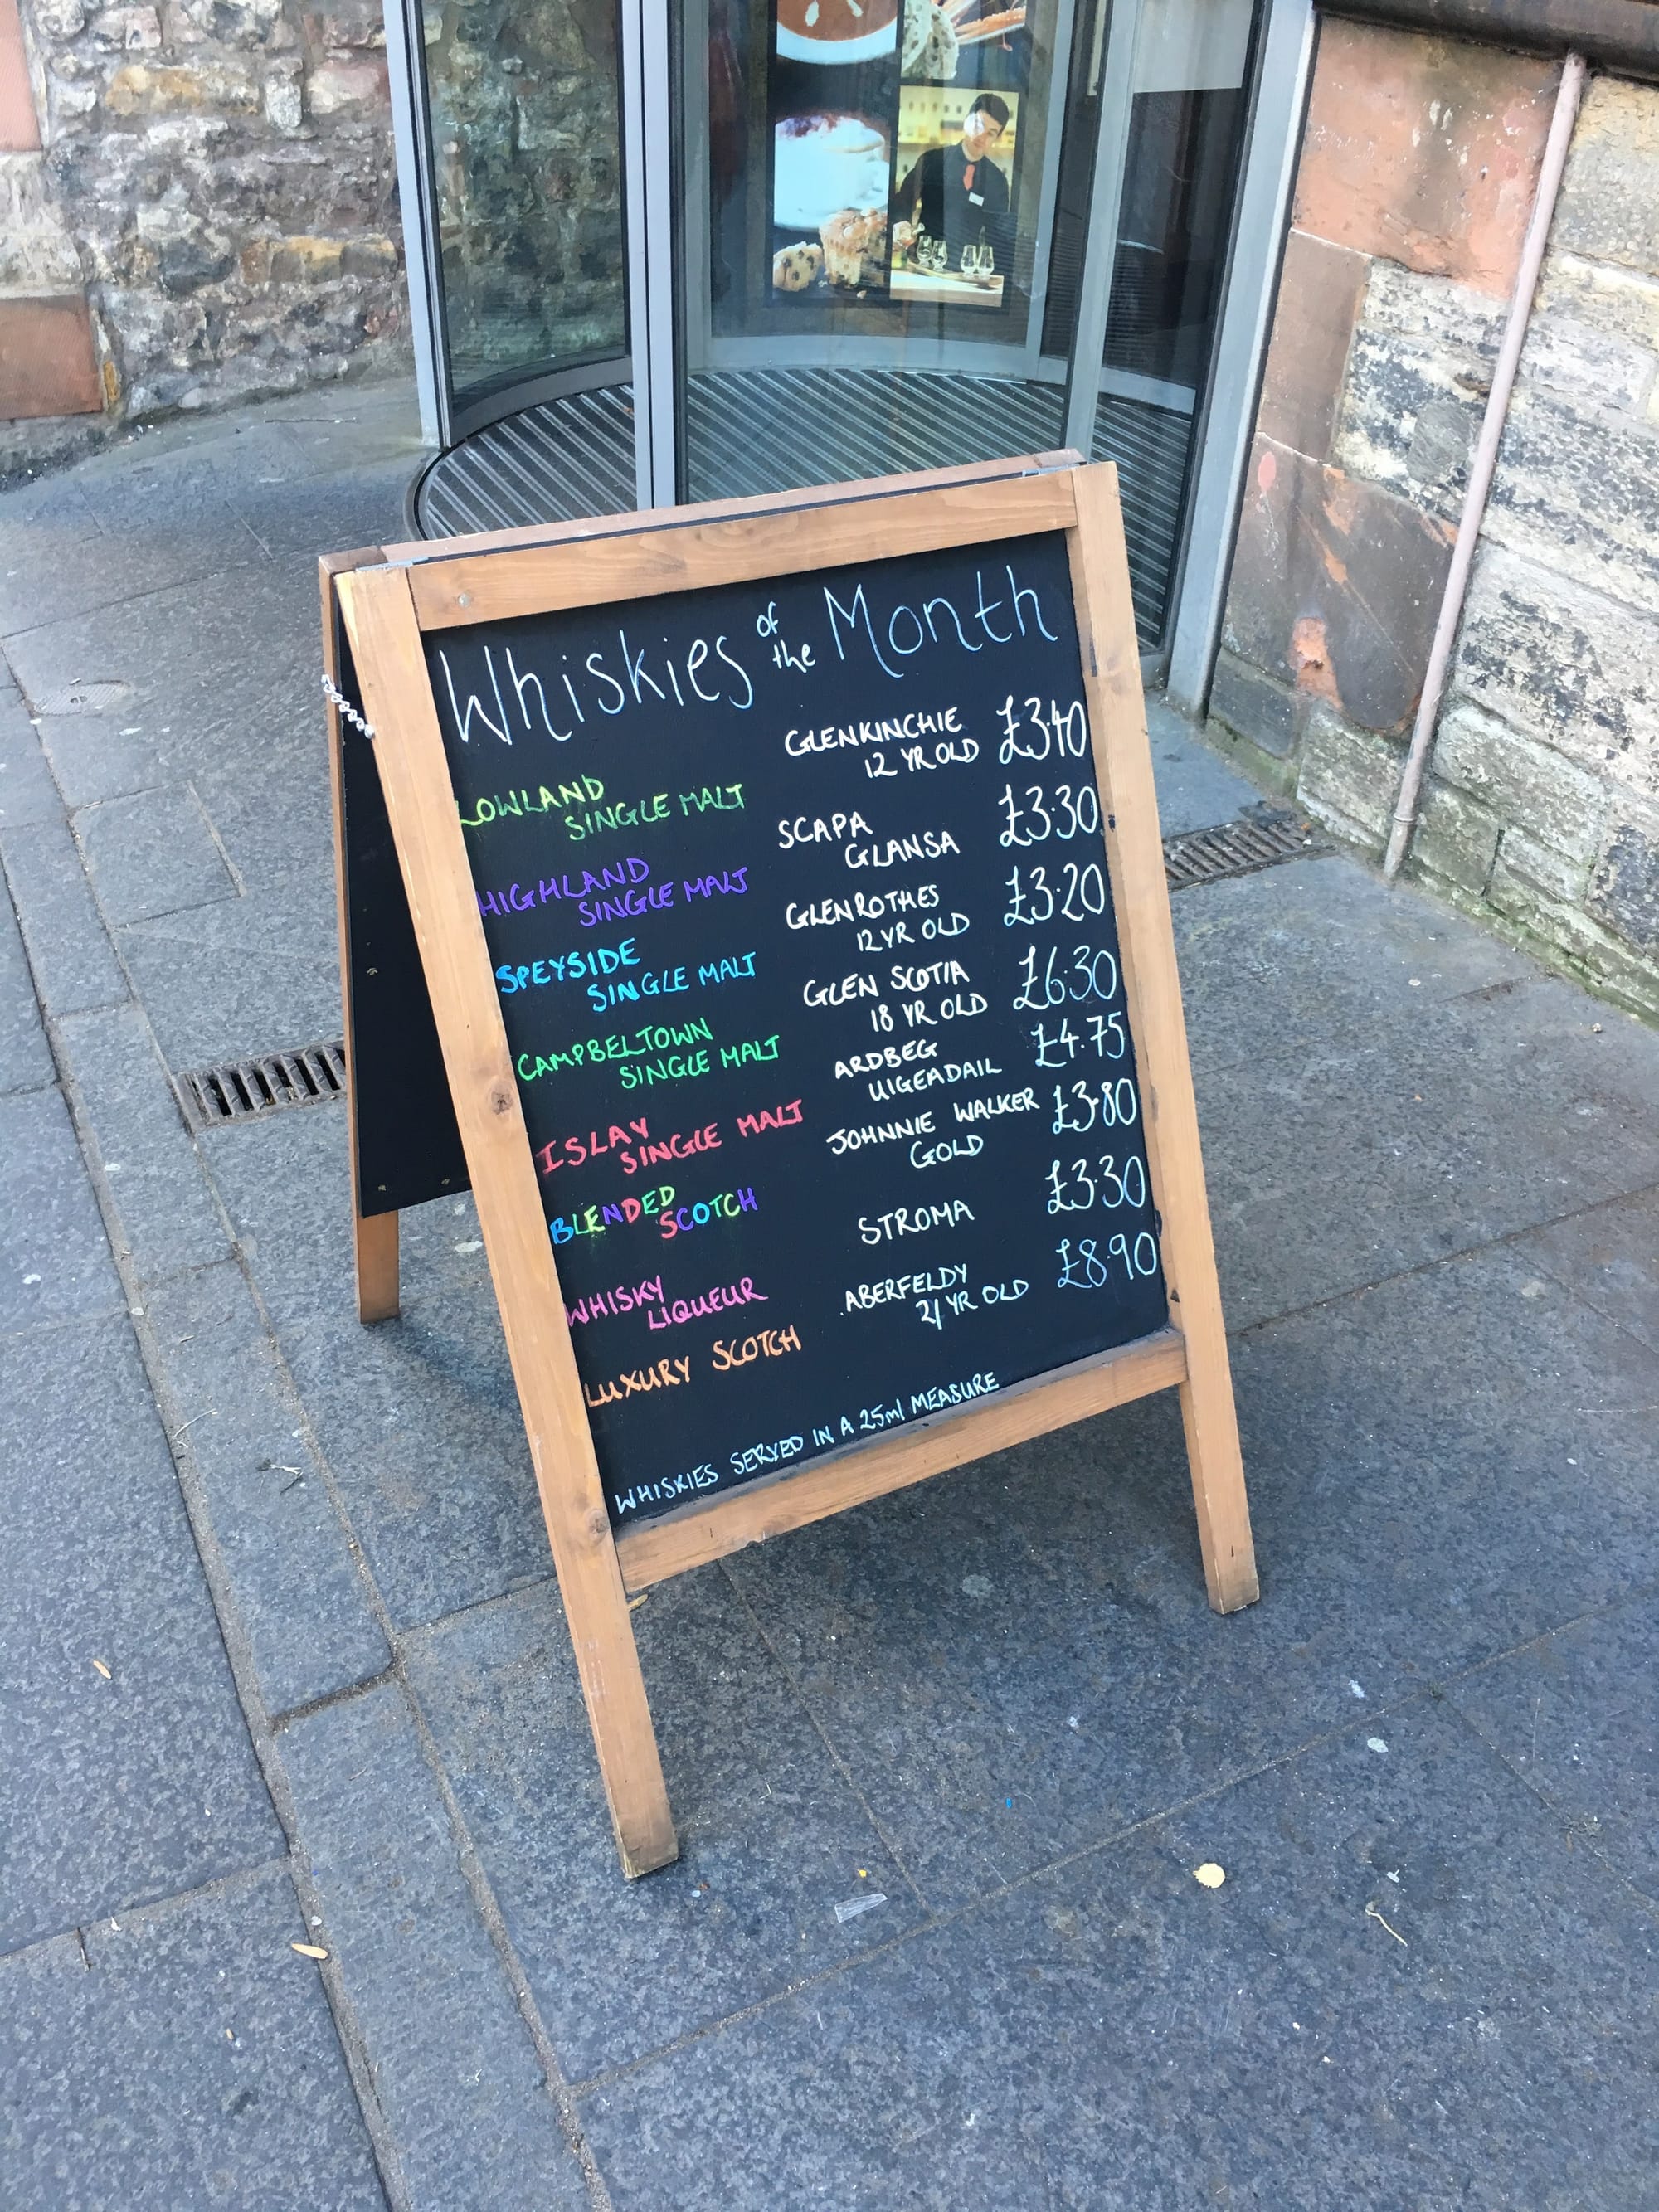 Whiskies of the Month
LOWLAND
SINGLE MALT
GLENKINCHIE
12 YR OLD
£3.40
HIGHLAND
SINGLE MALT
SCAPA
GLANSA
£3.30
SPEYSIDE
SINGLE MALT
GLENROTHES
12 YR OLD
£3.20
CAMPBELTOWN
SINGLE MALT
GLEN SCOTIA
18 YR OLD
£6.30
ISLAY
SINGLE MALT
ARDBEG
UIGEADAIL
£4.75
BLENDED
SCOTCH
JOHNNIE WALKER
GOLD
£3.80
WHISKY
LIQUEUR
STROMA
£3.30
LUXURY SCOTCH
ABERFELDY
21 YR OLD
£8.90
WHISKIES SERVED IN A 25ml MEASURE